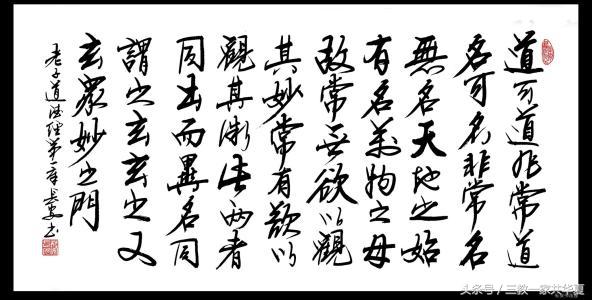 道可道非常道
名可名非常名
無名天地之始
有名萬物之母
故常无欲以觀
其妙常有欲以
觀其徼此两者
同出而異名同
謂之玄玄之又
玄眾妙之門
老子道德经第一章书
头条号/三教一家共华夏